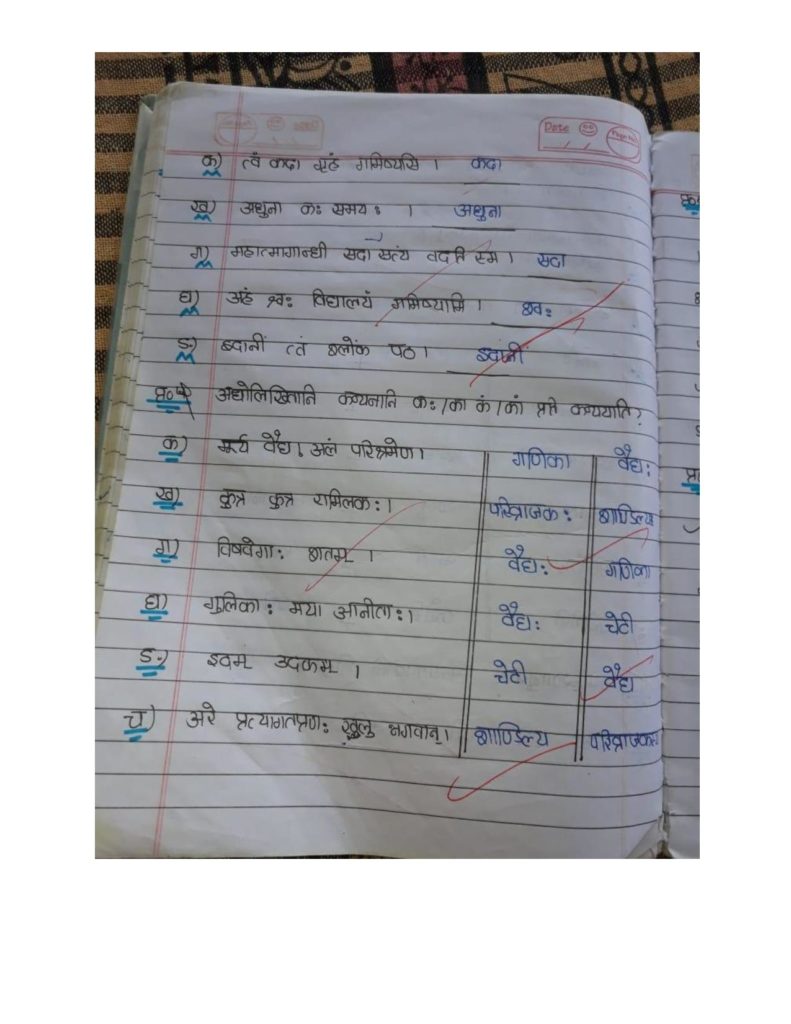 Date
क) त्वं कदा गृहं गमिष्यसि । कदा
ख) अधुना कः समयः । अधुना
ग) महात्मागान्धी सदा सत्यं वदति स्म । सदा
घ) अहं श्वः विद्यालयं गमिष्यामि । श्वः
ङ) इदानीं त्वं श्लोकं पठ । इदानीं
अधोलिखितानि कथनानि कः/का कं/कां प्रति कथयति?
क) मूर्ख वैद्य। अलं परिश्रमेण। गणिका वैद्यः
ख) कुत्र कुत्र रामिलकः। परिव्राजकः शाण्डिल्य
ग) विषवेगाः शतम् । वैद्यः गणिका
घ) गुलिकाः मया आनीताः। वैद्यः चेटी
ङ) इदम् उदकम् । चेटी वैद्य
च) अरे प्रत्यागतप्राणः खलु भगवान्। शाण्डिल्य परिव्राजकः